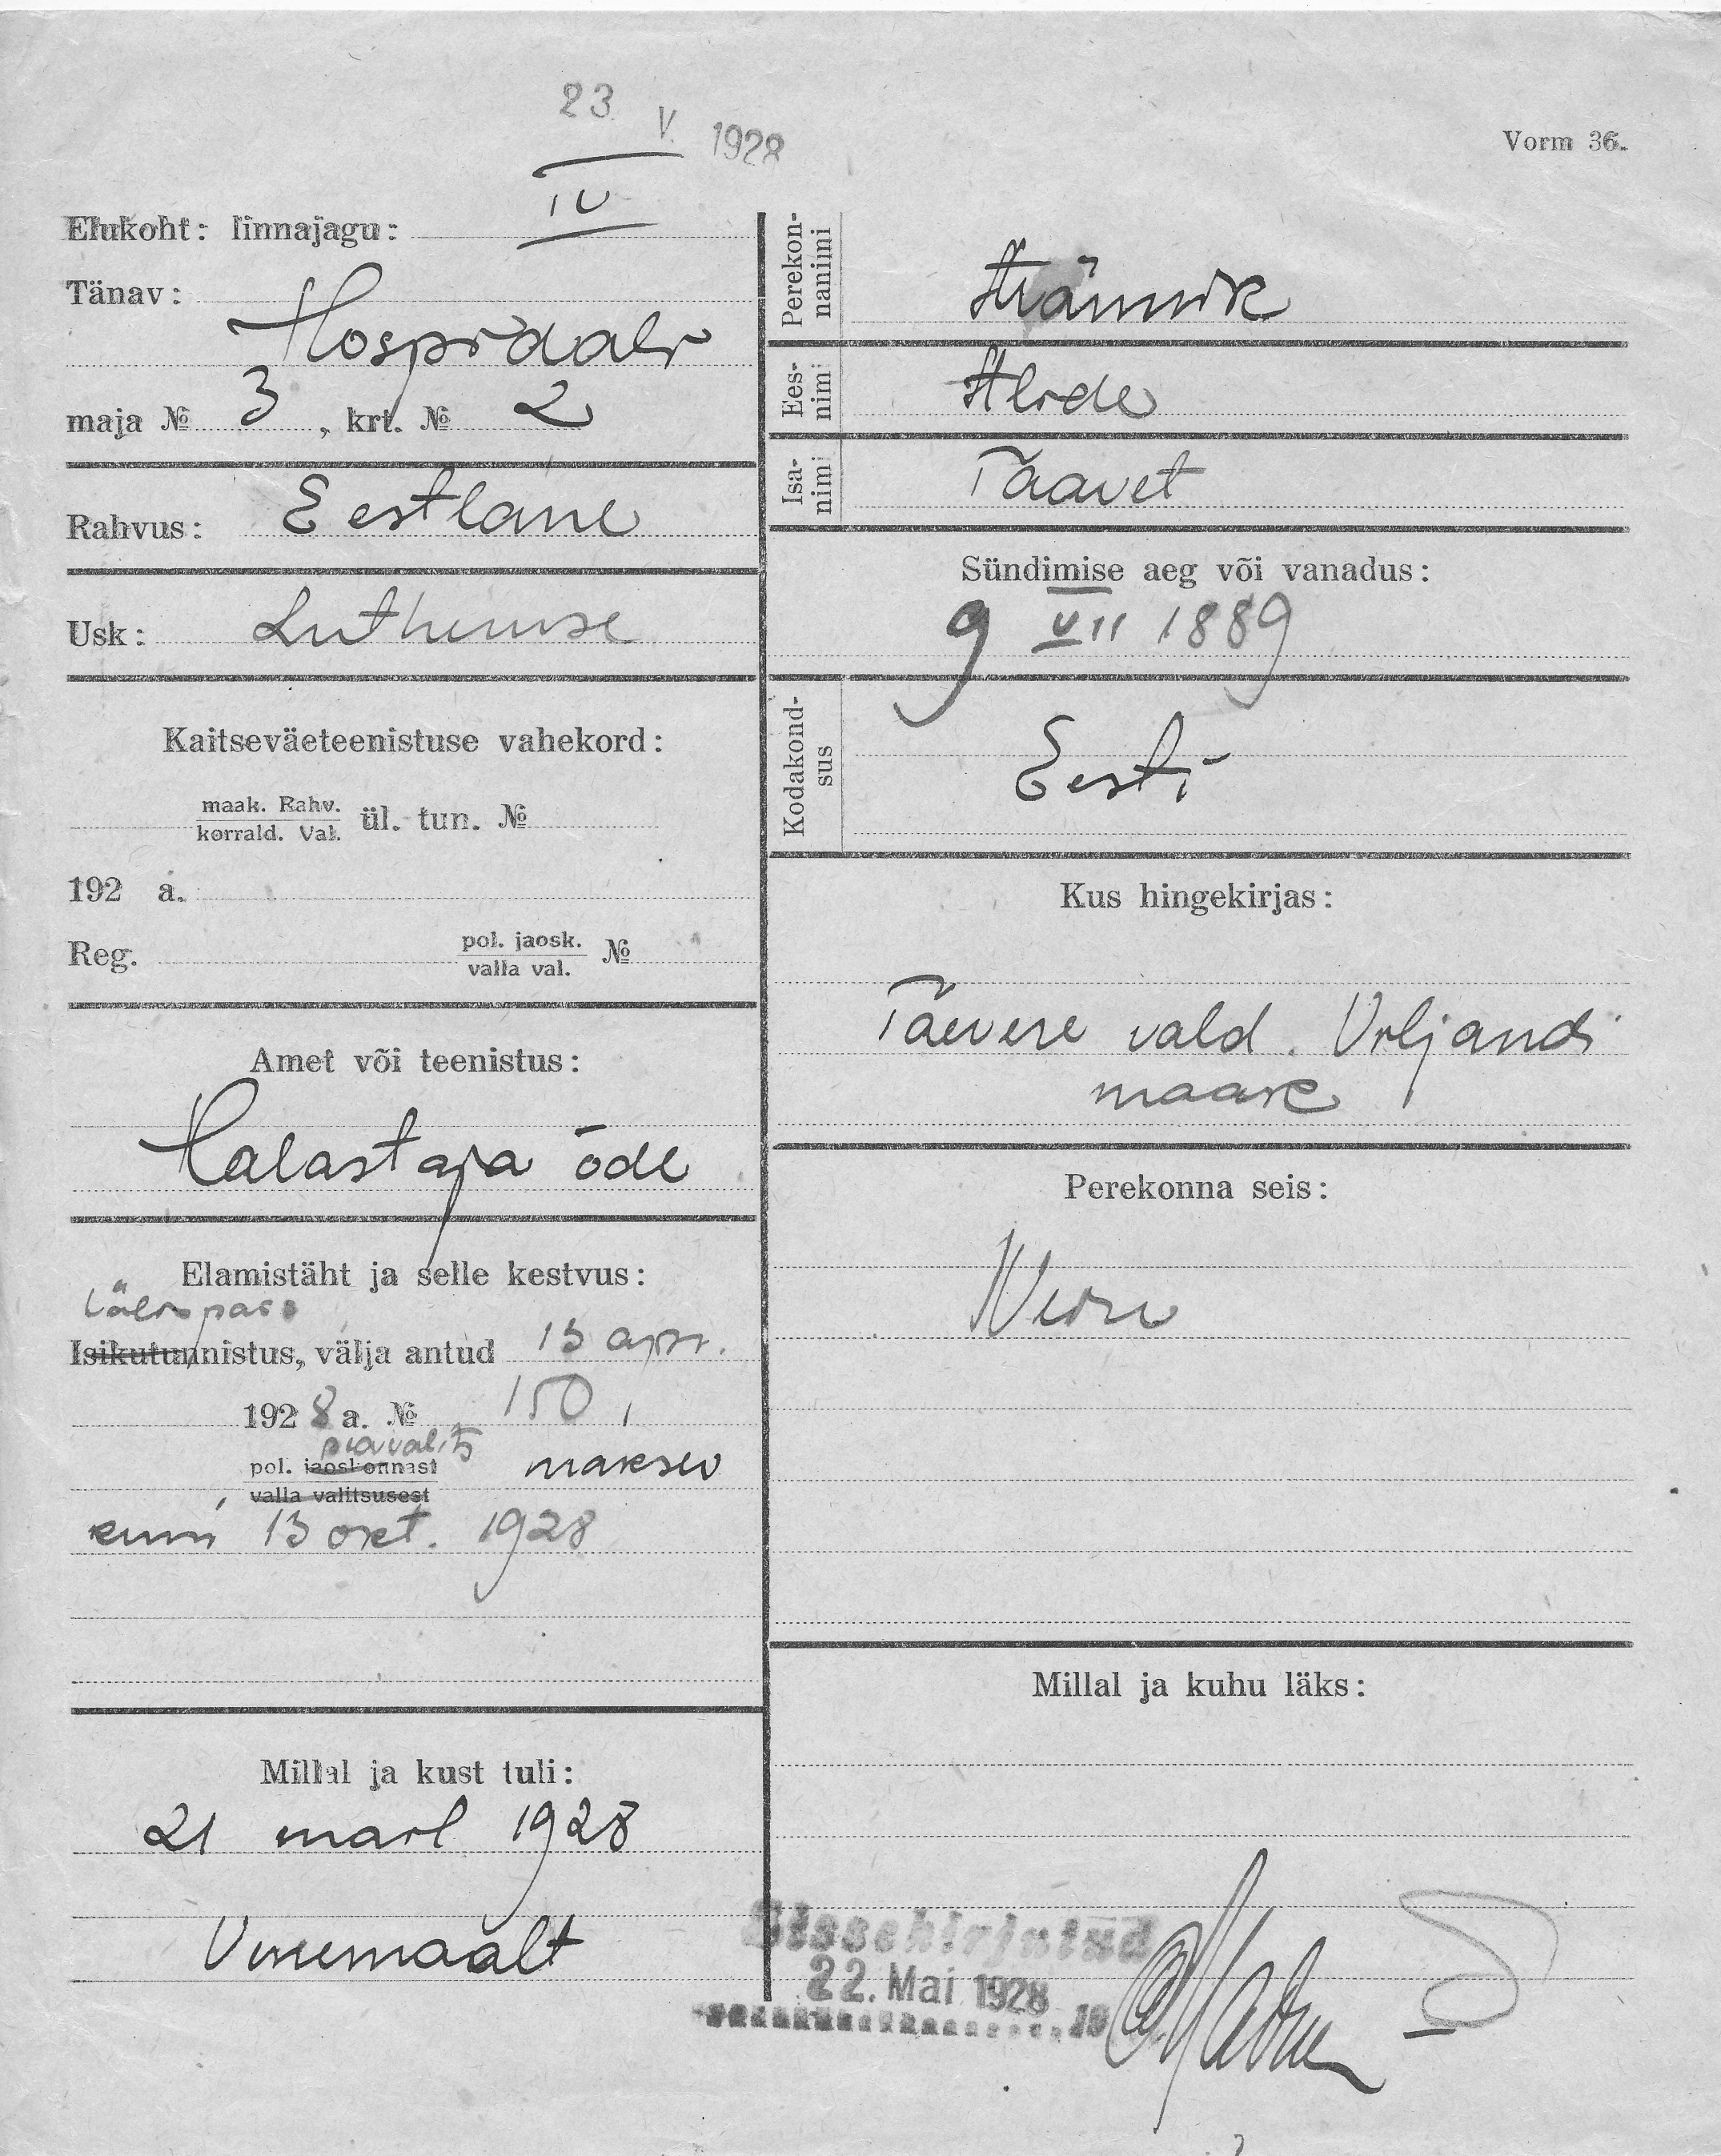 23 V. 1928
Vorm 36.
IV
Elukoht: linnajagu:
Tänav:
Hospidaali
maja № 3, krt. № 2
Rahvus: Eestlane
Usk: Lutheruse
Kaitseväeteenistuse vahekord:
maak. Rahv.
korrald. Val. ül. tun. №
192 a.
Reg. pol. jaosk.
valla val. №
Amet või teenistus:
Halastaja õde
Elamistäht ja selle kestvus:
Välispass
Isikutunnistus, välja antud 13 apr.
1928 a. № 150,
pol. jaoskonnast maksev
valla valitsusest
kuni 13 okt. 1928
Millal ja kust tuli:
21 mail 1928
Venemaalt
Perekon-
nanimi
Männik
Ees-
nimi
Alide
Isa-
nimi
Taavet
Sündimise aeg või vanadus:
9 VII 1889
Kodakond-
sus
Eesti
Kus hingekirjas:
Taevere vald. Viljandi
maak
Perekonna seis:
Millal ja kuhu läks:
Sissekirjutud
22. Mai 1928 19